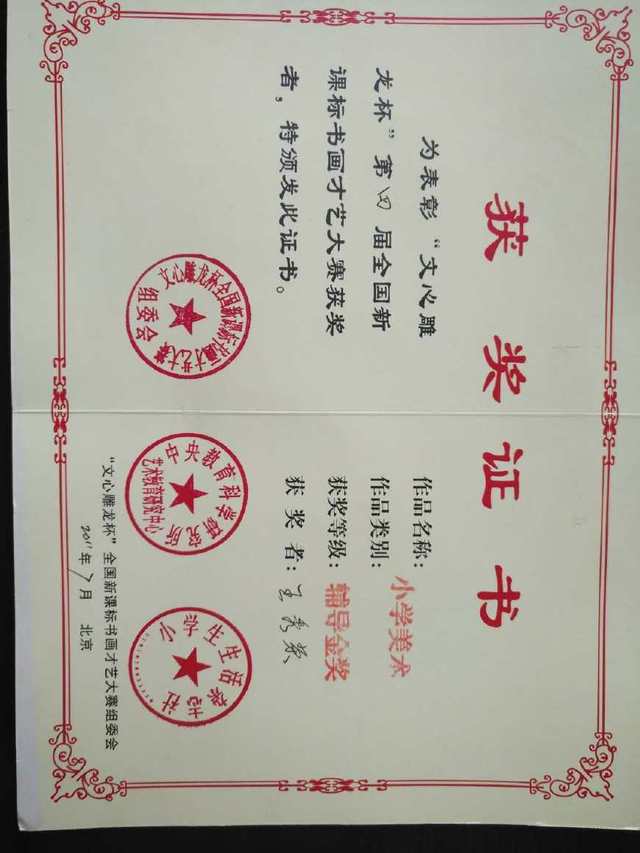 获奖证书
为表彰“文心雕
龙杯”第四届全国新
课标书画才艺大赛获奖
者，特颁发此证书。
作品名称：
作品类别：小学美术
获奖等级：辅导金奖
获奖者：王秀荣
文心雕龙杯全国新课标书画才艺大赛
组委会
中央教育科学研究所
艺术教育研究中心
小学生生活杂志社
“文心雕龙杯”全国新课标书画才艺大赛组委会
2011年7月 北京